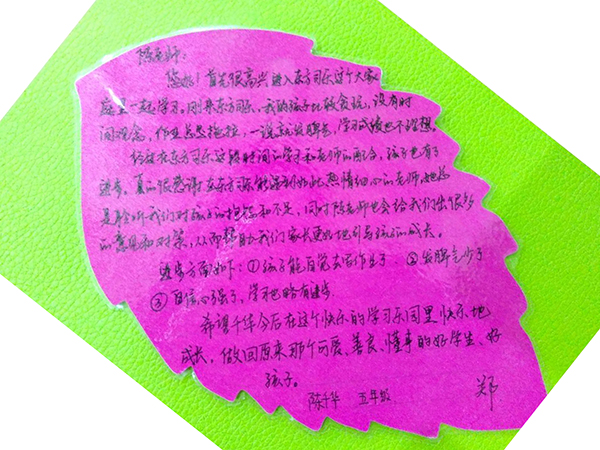 陈老师:
您好!首先很高兴进入东方同乐这个大家
庭里一起学习。刚来东方同乐,我的孩子比较贪玩,没有时
间观念,作业总是拖拉,一说就发脾气,学习成绩也不理想。
经过在东方同乐这段时间的学习和老师的配合,孩子也有了
进步。真的很感谢在东方同乐能遇到如此热情细心的老师,她总
是聆听我们对孩子的抱怨和不足,同时陈老师也会给我们出很多
的意见和对策,从而帮助我们家长更好地引导孩子的成长。
进步方面如下:①孩子能自觉去写作业了 ②发脾气少了
③自信心强了,学习也略有进步
希望千华今后在这个快乐的学习乐园里快乐地
成长,做回原来那个可爱、善良、懂事的好学生、好
孩子。
陈千华 五年级 郑